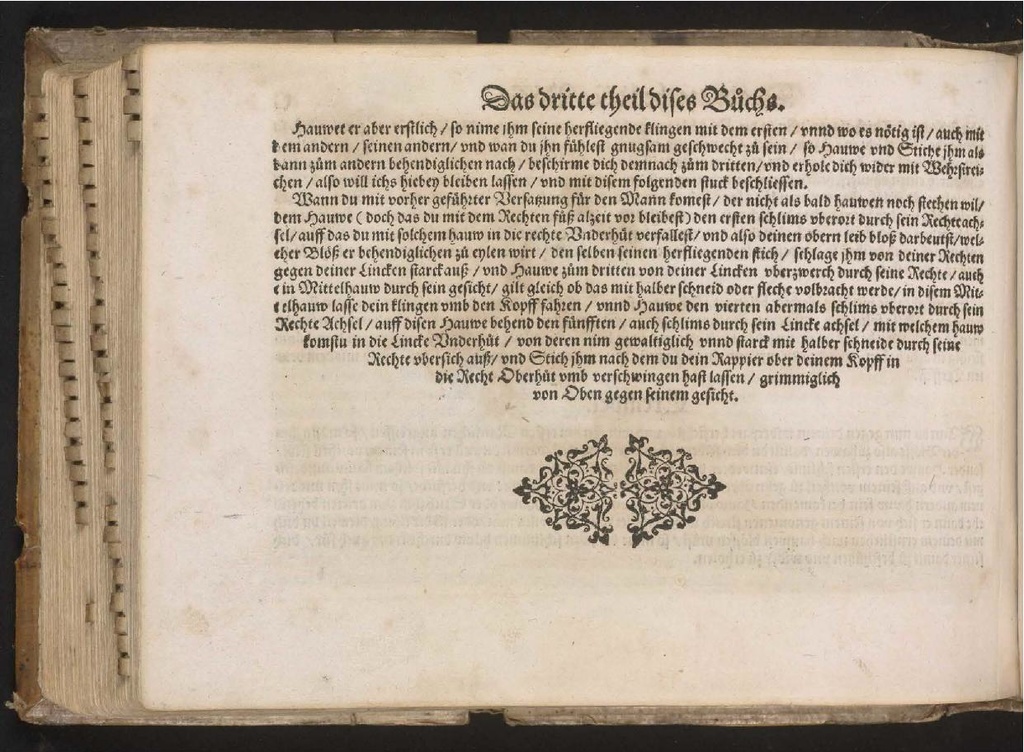 Das dritte theil dises Bůchs.
Hauwet er aber erstlich / so nime ihm seine herfliegende klingen mit dem ersten / vnnd wo es nötig ist / auch mit
dem andern / seinen andern / vnd wan du jhn fühlest gnugsam geschwecht zů sein / so Hauwe vnd Stiche jhm als
kann zům andern behendiglichen nach / beschirme dich demnach zům dritten / vnd erhole dich wider mit Wehrstrei-
chen / also will ichs hiebey bleiben lassen / vnd mit disem folgenden stuck beschliessen.
Wann du mit vorher geführter Versatzung für den Mann komest / der nicht als bald hauwen noch stechen wil /
dem Hauwe ( doch das du mit dem Rechten fůß alzeit vor bleibest ) den ersten schlims vberort durch sein Rechte ach-
sel / auff das du mit solchem hauw in die rechte Vnderhůt verfallest / vnd also deinen obern leib bloß darbeutst / wel-
cher Blöß er behendiglichen zů eylen wirt / den selben seinen herfliegenden stich / schlage jhm von deiner Rechten
gegen deiner Lincken starck auß / vnd Hauwe zům dritten von deiner Lincken vberzwerch durch seine Rechte / auch
ein Mittelhauw durch sein gesicht / gilt gleich ob das mit halber schneid oder fleche volbracht werde / in disem Mit-
telhauw lasse dein klingen vmb den Kopff fahren / vnnd Hauwe den vierten abermals schlims vberort durch sein
Rechte Achsel / auff disen Hauwe behend den fünfften / auch schlims durch sein Lincke achsel / mit welchem hauw
komstu in die Lincke Vnderhůt / von deren nim gewaltiglich vnnd starck mit halber schneide durch seine
Rechte vbersich auß / vnd Stich jhm nach dem du dein Rappier ober deinem Kopff in
die Recht Oberhůt vmb verschwingen hast lassen / grimmiglich
von Oben gegen seinem gesicht.